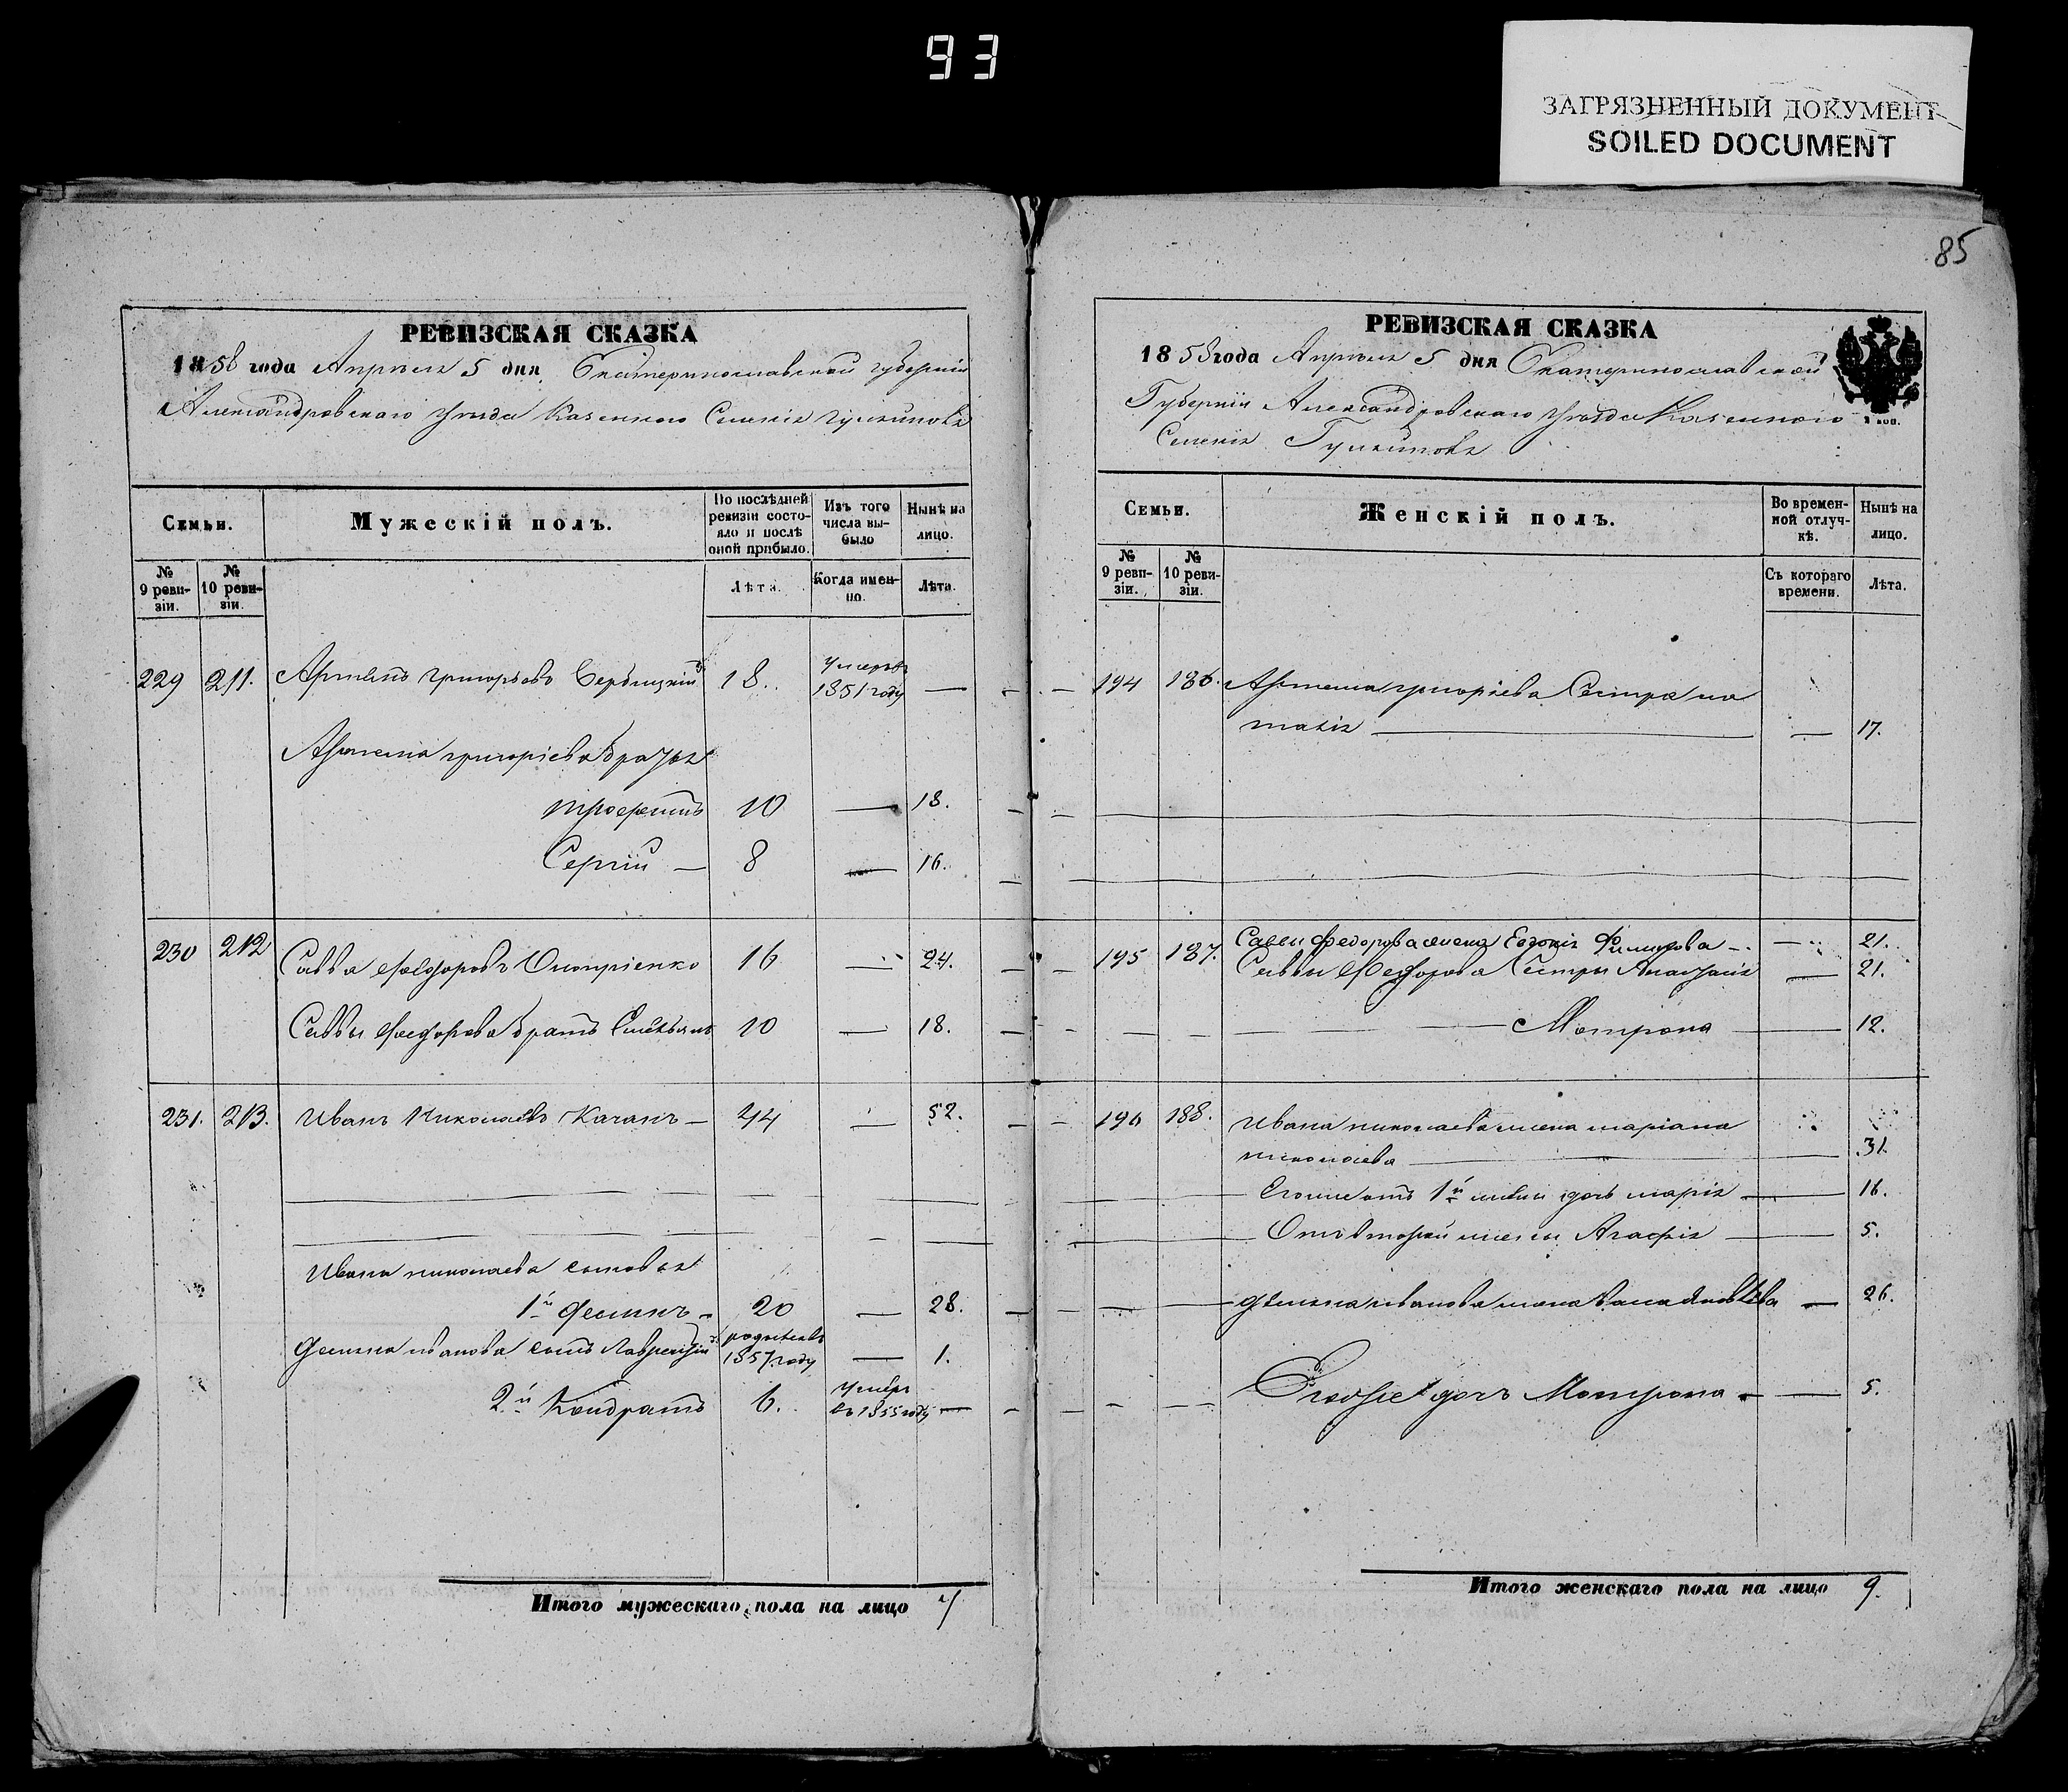 93
ЗАГРЯЗНЕННЫЙ ДОКУМЕНТ
SOILED DOCUMENT
РЕВИЗСКАЯ СКАЗКА
1858 года Апреля 5 дня Екатеринославской губерніи
Александровскаго уезда Казенного Селенія Гуляйполя
Семьи.
Мужескій полъ.
По послѣдней ревизіи состояло и послѣ оной прибыло.
Изъ того числа выбыло
Нынѣ на лицо.
№ 9 ревизіи.
№ 10 ревизіи.
Лѣта.
Когда именно.
Лѣта.
229 211. Артемъ Григорьевъ 18. умеръ 1851 году —
Артема григоріева братья
Трофимъ 10 — 18.
Сергій — 8 — 16.
230 212 Савва Федоровъ Оноприенко 16 — 24.
Саввы Федорова братъ 10 — 18.
231. 213. Иванъ Николаевъ Качанъ — 44 — 52.
Ивана николаева сыновья
1й Демянъ — 20 — 28.
Демяна иванова сынъ Лаврентій родился 1857 году — 1.
2й Кондратъ 6. умеръ въ 1855 году —
Итого мужескаго пола на лицо 7
85
РЕВИЗСКАЯ СКАЗКА
1858 года Апреля 5 дня Екатеринославской
Губерніи Александровскаго уезда Казенного
Селенія Гуляйполя
Семьи.
Женскій полъ.
Во временной отлучкѣ.
Нынѣ на лицо.
№ 9 ревизіи.
№ 10 ревизіи.
Съ котораго времени.
Лѣта.
194 186. Артема григоріева Сестра На
талія — — 17.
195 187. Саввы Федорова жена Евдокія — 21.
Саввы Федорова Сестры Анастасія — 21.
Мотрона — 12.
196 188. Ивана николаева жена маріана
николаева — 31.
Егоже отъ 1й жены дочь марія — 16.
Отъ второй жены Агафія — 5.
Демяна иванова жена Яковлева — 26.
дочь Мотрона — 5.
Итого женскаго пола на лицо 9.